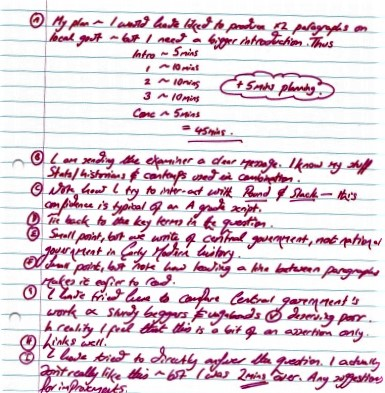 (A) My plan ~ I would have liked to produce x2 paragraphs on
local govt ~ but I need a bigger introduction. Thus
Intro ~ 5mins
1 ~ 10mins
2 ~ 10mins
3 ~ 10mins
+ 5mins planning.
Conc ~ 5mins
= 45mins.
(B) I am sending the examiner a clear message. I know my stuff
Stats/historians & contemps used in combination.
(C) Note how I try to inter-act with Pound & Slack — this
confidence is typical of an A grade script.
(D) Tie back to the key terms in the question.
(E) Small point, but we write of central government, not national
government in Early Modern history.
(F) Small point, but note how leaving a line between paragraphs
makes it easier to read.
(G) I have tried here to compare Central government's
work sturdy beggars & vagabonds deserving poor.
In reality I feel that this is a bit of an assertion only.
(H) Links well.
(I) I have tried to directly answer the question. I actually
don't really like this ~ but I was 2mins over. Any suggestions
for improvements.